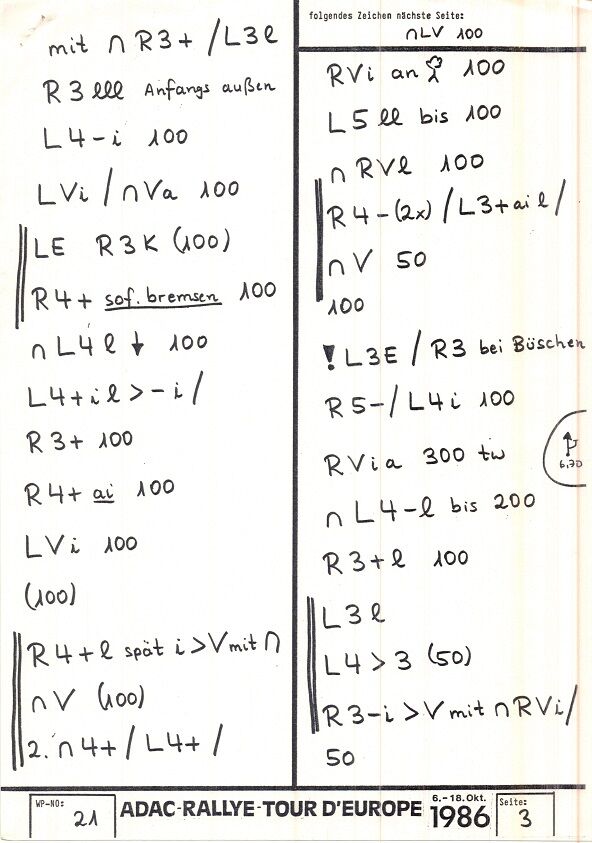 mit ∩ R3+ /L3l
R3 lll Anfangs außen
L4-i 100
LVi /∩Va 100
LE R3K (100)
R4+ sof. bremsen 100
∩ L4 l ↓ 100
L4+il >-i/
R3+ 100
R4+ ai 100
LVi 100
(100)
R4+l spät i>V mit ∩
∩V (100)
2. ∩4+/ L4+ /
folgendes Zeichen nächste Seite:
∩LV 100
RVi an 100
L5 ll bis 100
∩ RVl 100
R4-(2x) /L3+ail/
∩V 50
100
! L3E / R3 bei Büschen
R5-/ L4i 100
RVia 300 tw
6,70
∩ L4-l bis 200
R3+l 100
L3l
L4>3 (50)
R3-i >V mit ∩ RVi/
50
WP-NO: 21
ADAC-RALLYE-TOUR D'EUROPE 6.-18. Okt. 1986
Seite: 3